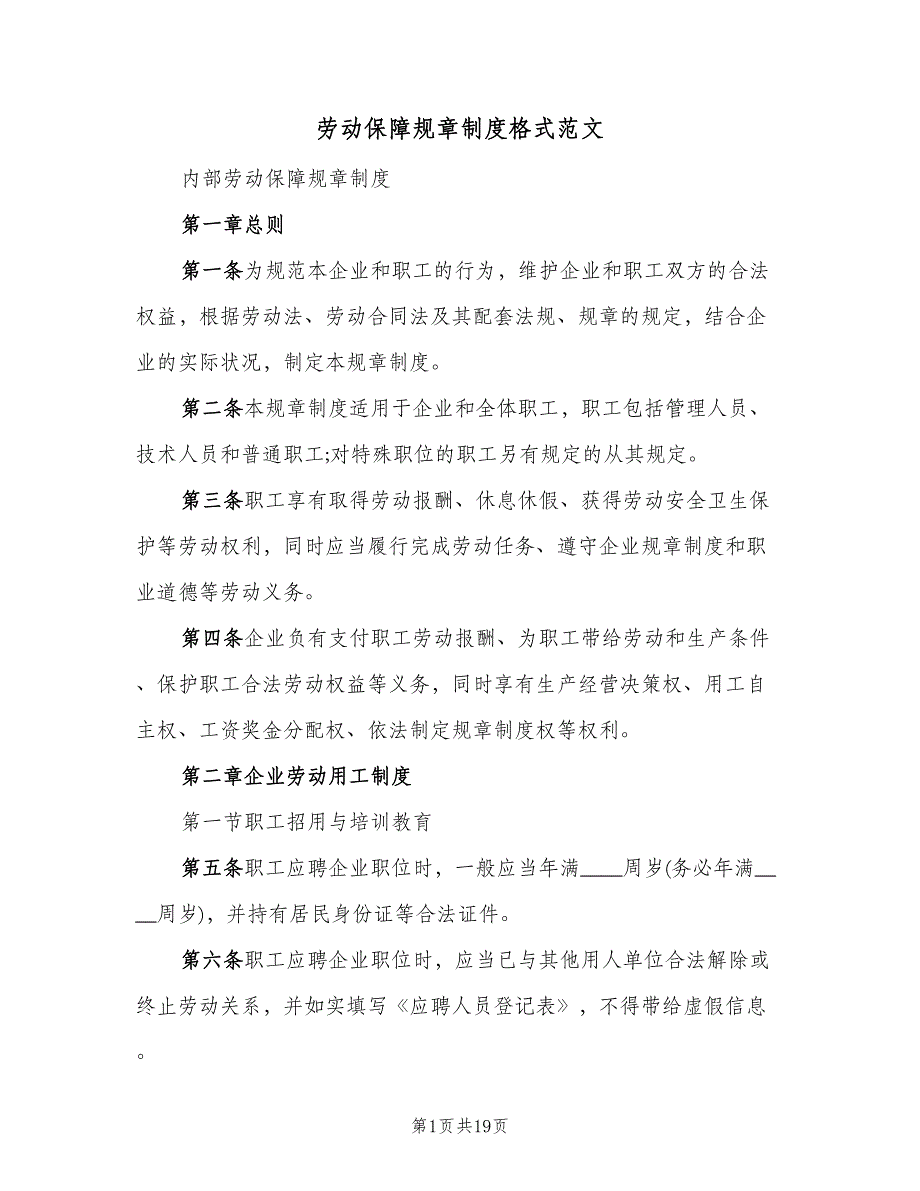 劳动保障规章制度格式范文
内部劳动保障规章制度
第一章总则
第一条为规范本企业和职工的行为，维护企业和职工双方的合法
权益，根据劳动法、劳动合同法及其配套法规、规章的规定，结合企
业的实际状况，制定本规章制度。
第二条本规章制度适用于企业和全体职工，职工包括管理人员、
技术人员和普通职工;对特殊职位的职工另有规定的从其规定。
第三条职工享有取得劳动报酬、休息休假、获得劳动安全卫生保
护等劳动权利，同时应当履行完成劳动任务、遵守企业规章制度和职
业道德等劳动义务。
第四条企业负有支付职工劳动报酬、为职工带给劳动和生产条件
、保护职工合法劳动权益等义务，同时享有生产经营决策权、用工自
主权、工资奖金分配权、依法制定规章制度权等权利。
第二章企业劳动用工制度
第一节职工招用与培训教育
第五条职工应聘企业职位时，一般应当年满____周岁(务必年满__
__周岁)，并持有居民身份证等合法证件。
第六条职工应聘企业职位时，应当已与其他用人单位合法解除或
终止劳动关系，并如实填写《应聘人员登记表》，不得带给虚假信息
。
第1页共19页